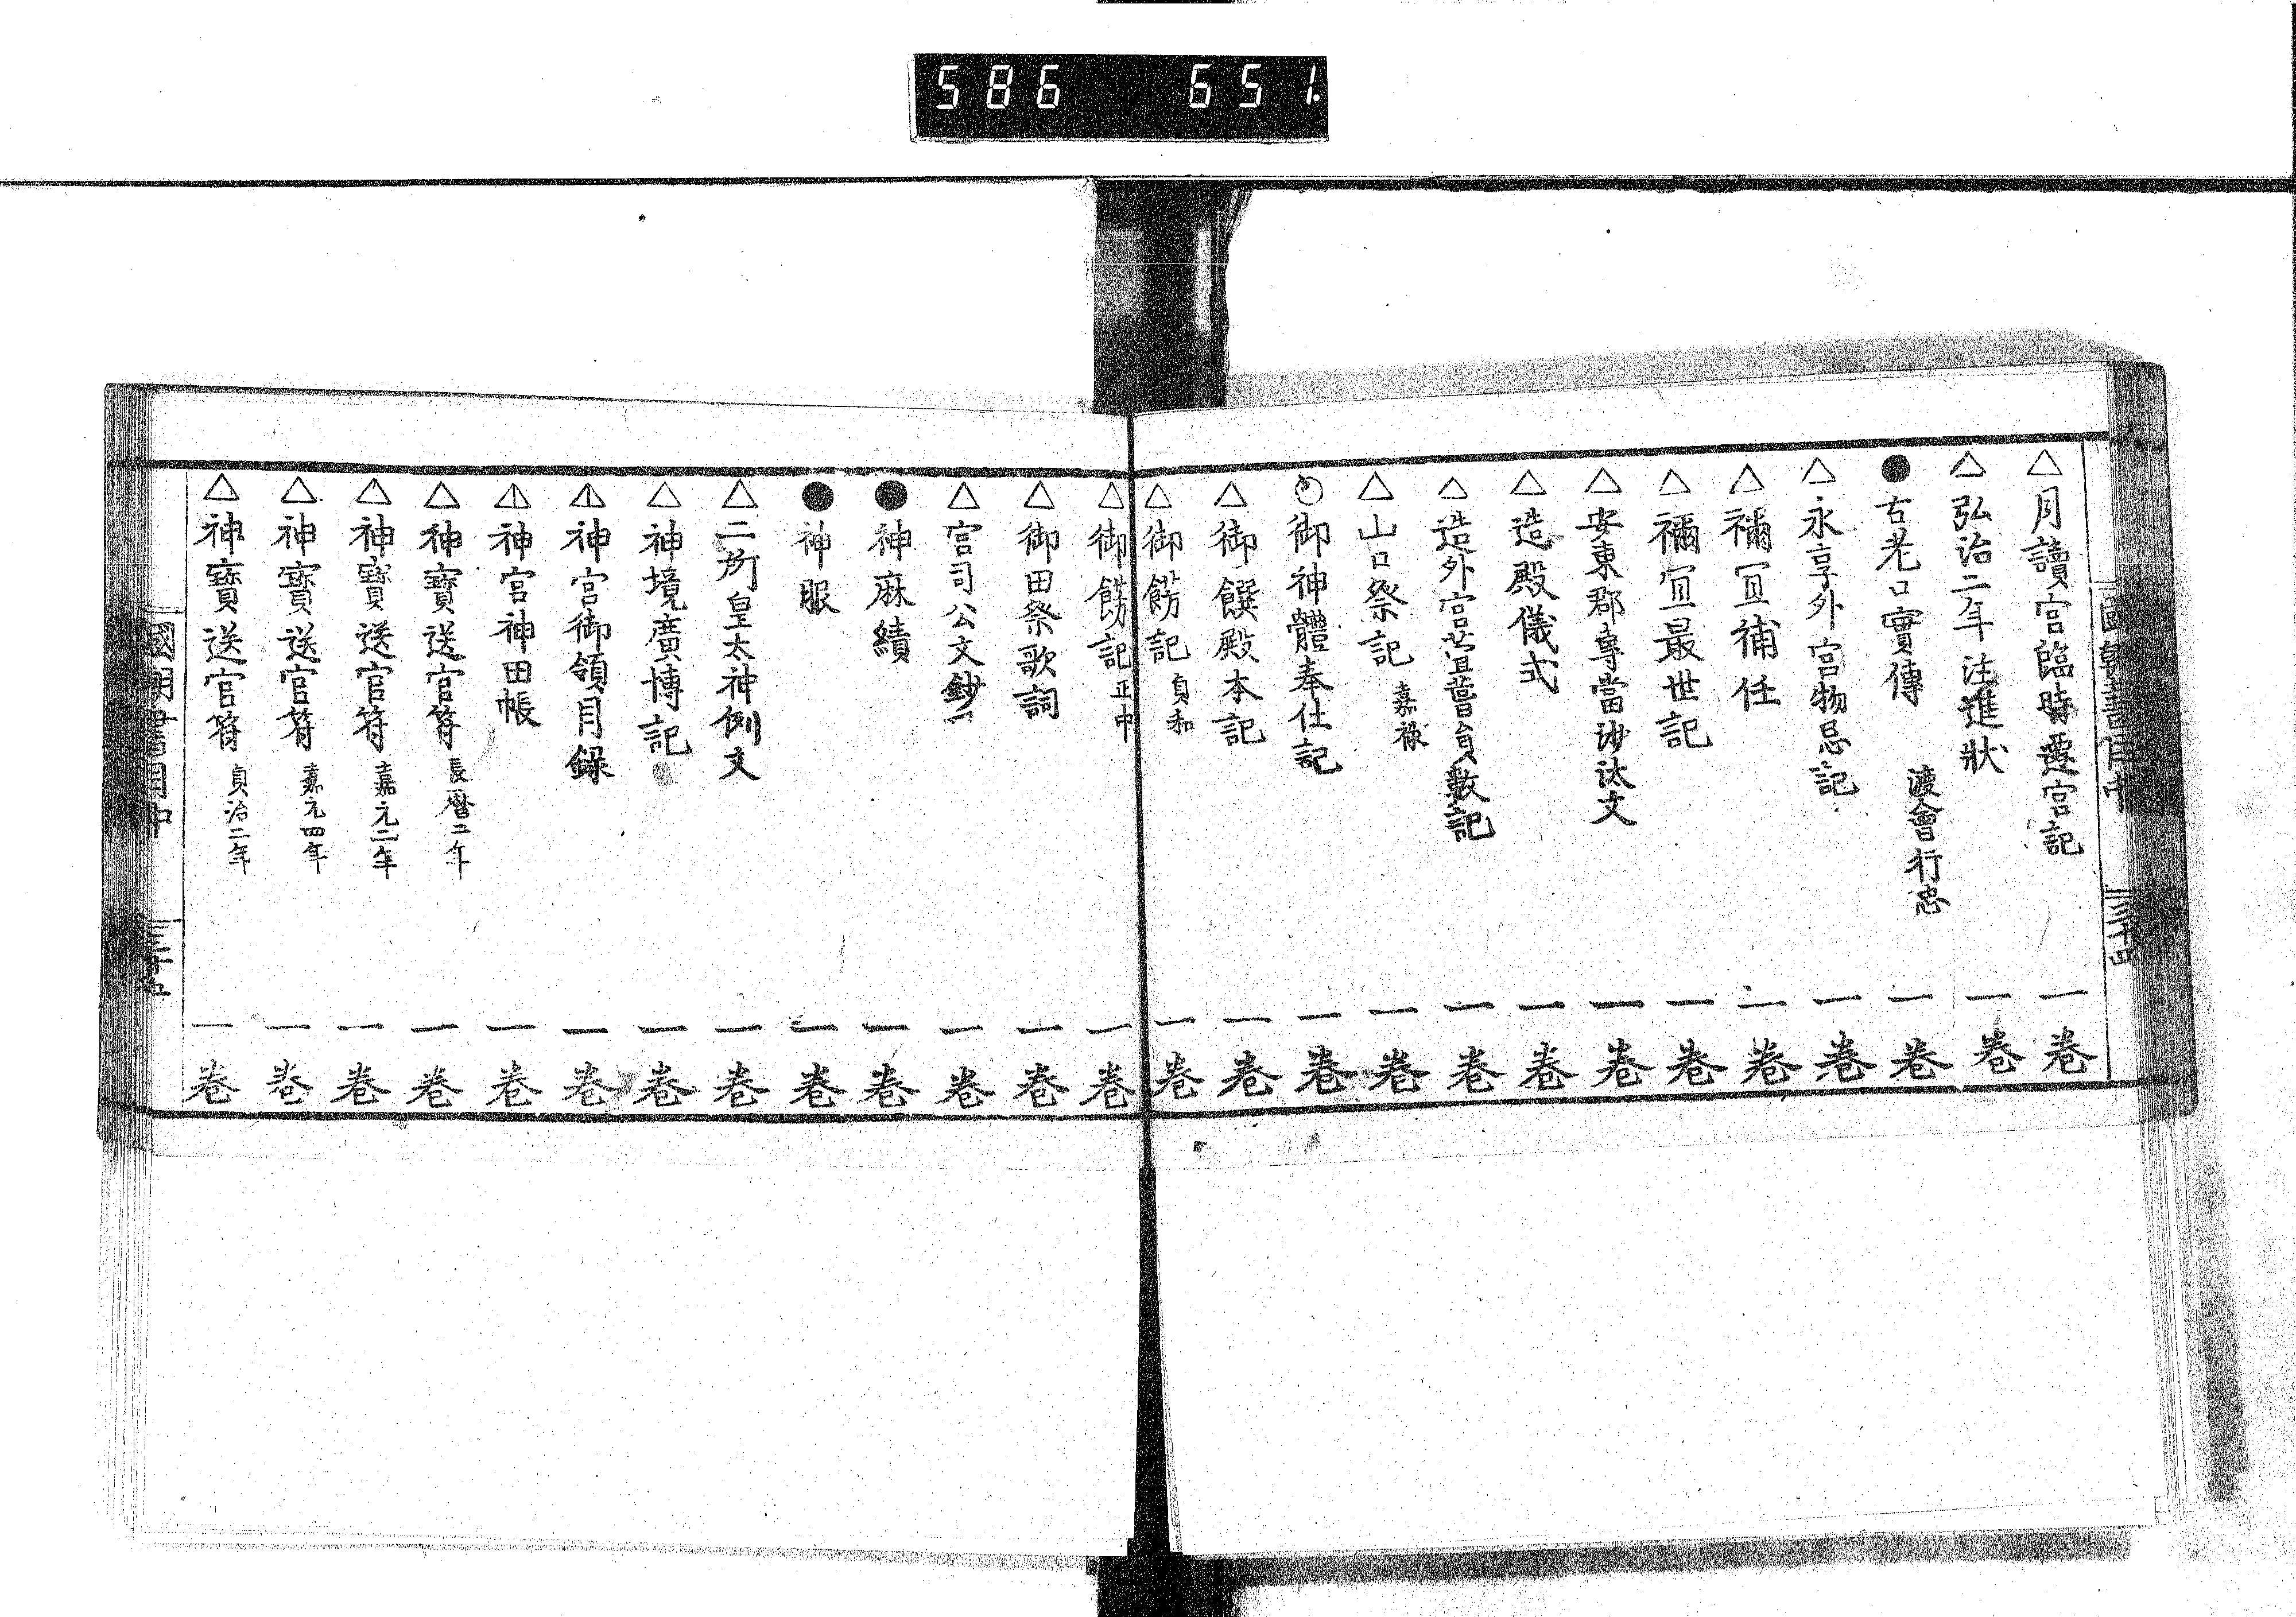 586 651.
△月讀宮臨時遷宮記 一卷
△弘治二年注進狀 一卷
●古老口實傳 渡會行忠 一卷
△永享外宮物忌記 一卷
△禰冝補任 一卷
△禰冝最世記 一卷
△安東郡專當沙汰文 一卷
△造殿儀式 一卷
△造外宮萓葺員數記 一卷
△山口祭記 嘉祿 一卷
御神體奉仕記 一卷
△御饌殿本記 一卷
△御餝記 貞和 一卷
三十四
△御餝記 正中 一卷
△御田祭歌詞 一卷
△宮司公文鈔 一卷
●神麻績 一卷
●神服 一卷
△二所皇太神例文 一卷
△神境廣博記 一卷
△神宮御領目錄 一卷
△神宮神田帳 一卷
△神寶送官符 長曆二年 一卷
△神寶送官符 嘉元二年 一卷
△神寶送官符 嘉元四年 一卷
△神寶送官符 貞治二年 一卷
國朝書目中
三十五